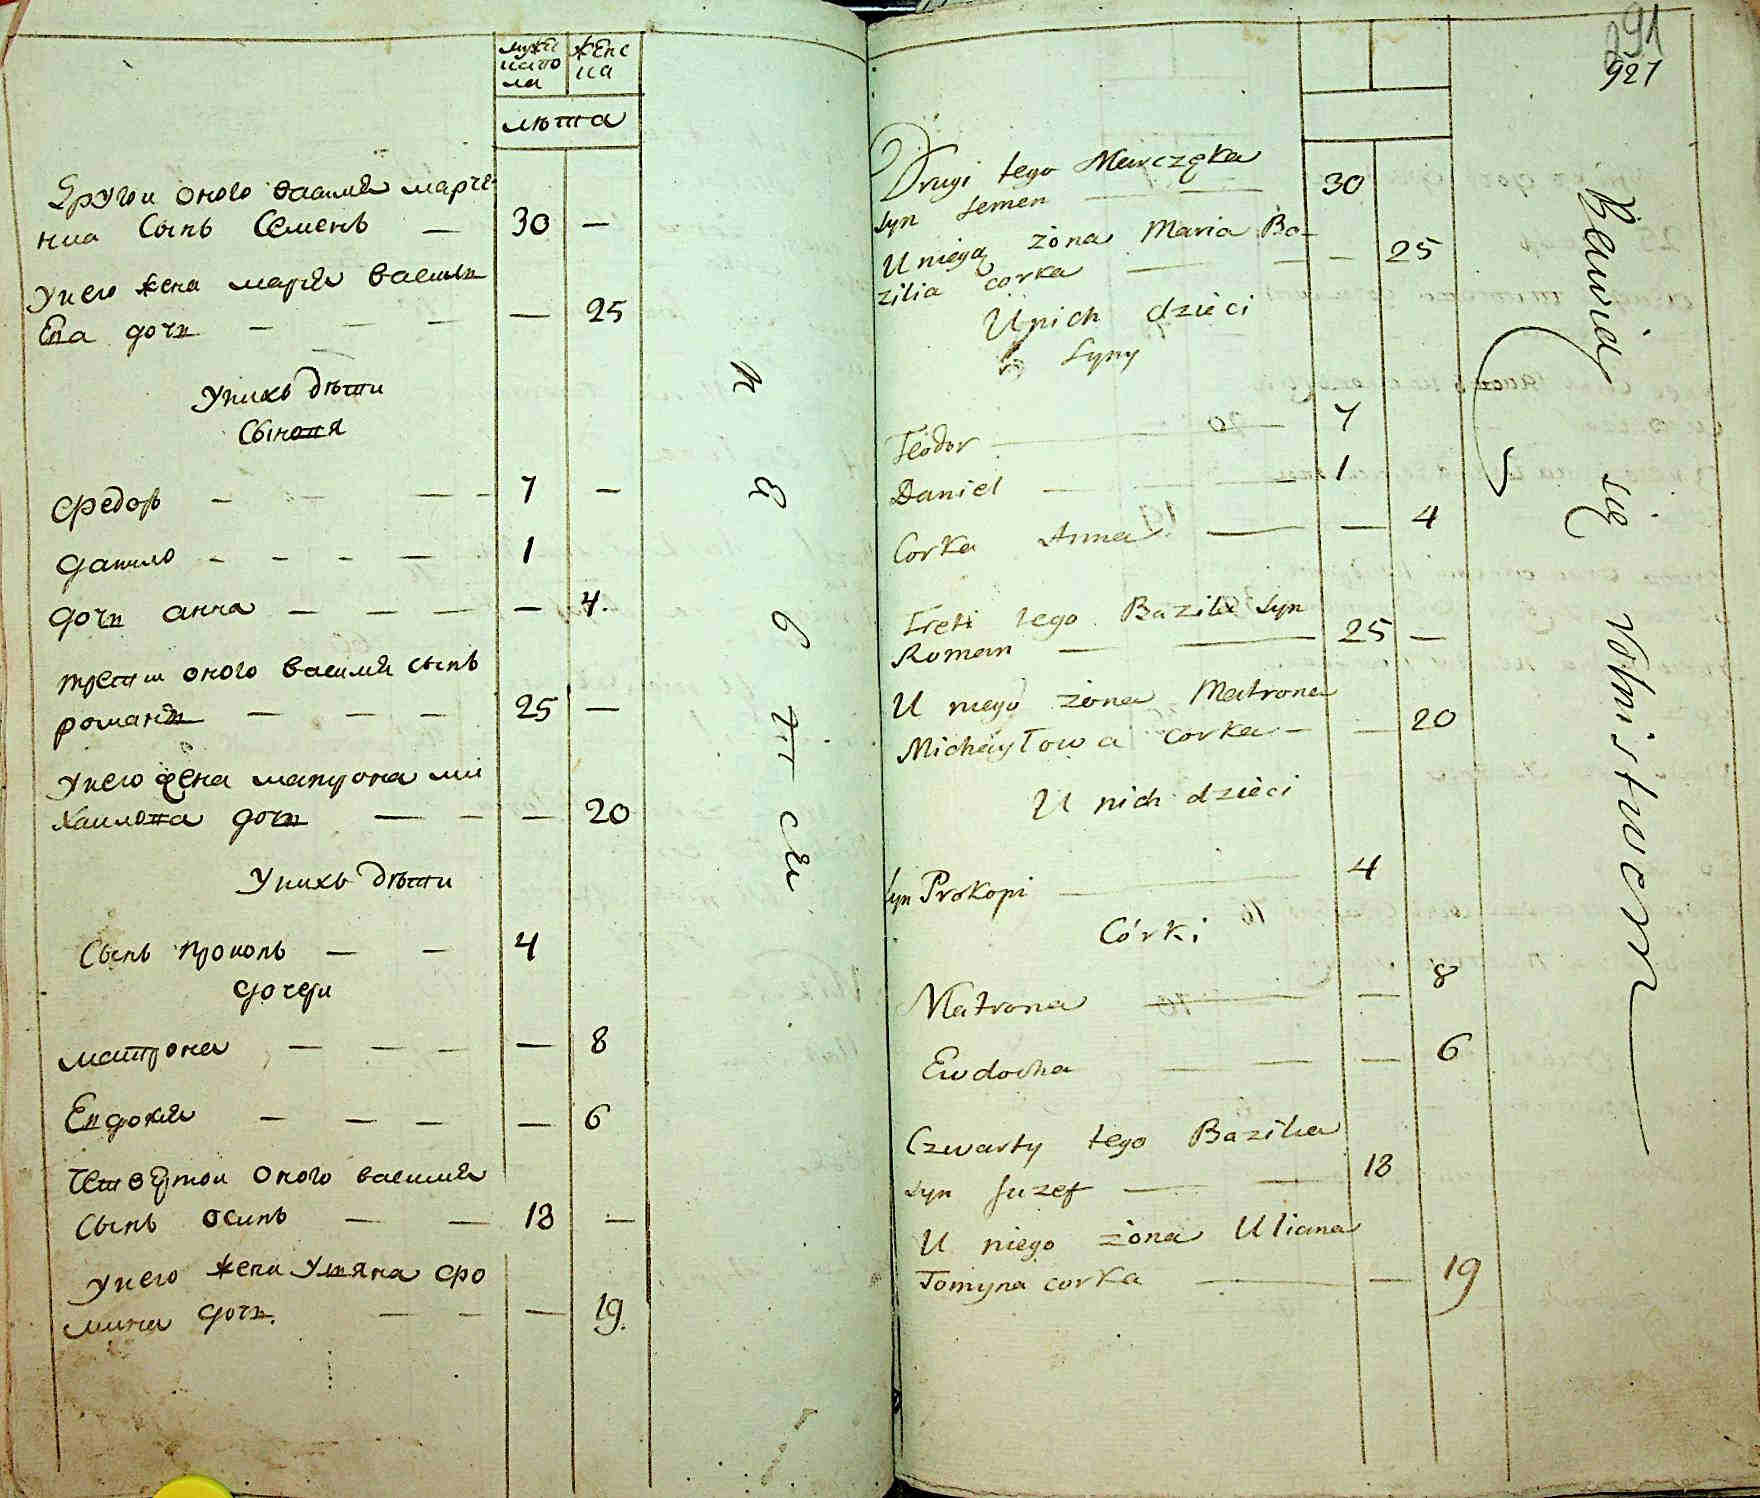 мужс
каго по
ла
женс
ка
лѣта
Другои оного василя марче
нка Сынъ Семенъ — 30 —
унего жена марія василь
Ева дочь — — — — 25
унихъ дѣти
Сыновя
Федоръ — — — 7 —
данило — — — — 1
дочь анна — — — — 4.
третии оного василя сынъ
романъ — — — 25 —
унего жена матрона ми
хаилова дочь — — — 20
Унихъ дѣти
Сынъ прокопъ — — 4
дочери
матрона — — — — 8
Евдокия — — — — 6
Четвертои оного василия
Сынъ осипъ — — 18 —
унего жена Уляна фо
мина дочь. — — — 19.
291
927
Drugi tego Marczęka
syn Semen — — 30
U niego żona Maria Ba-
zilia corka — — — 25
U nich dzieci
Syny
Teodor — — 7
Daniel — — 1
Corka Anna — — 4
Treti tego Bazila Syn
Roman — — 25 —
U niego żona Matrona
Michayłowa corka — — 20
U nich dzieci
Syn Prokopi — 4
Córki
Matrona — — 8
Ewdocha — — — 6
Czwarty tego Bazilia
syn Juzef — — 18
U niego żona Uliana
Tomyna corka — — 19
Bawią się rolnistwem